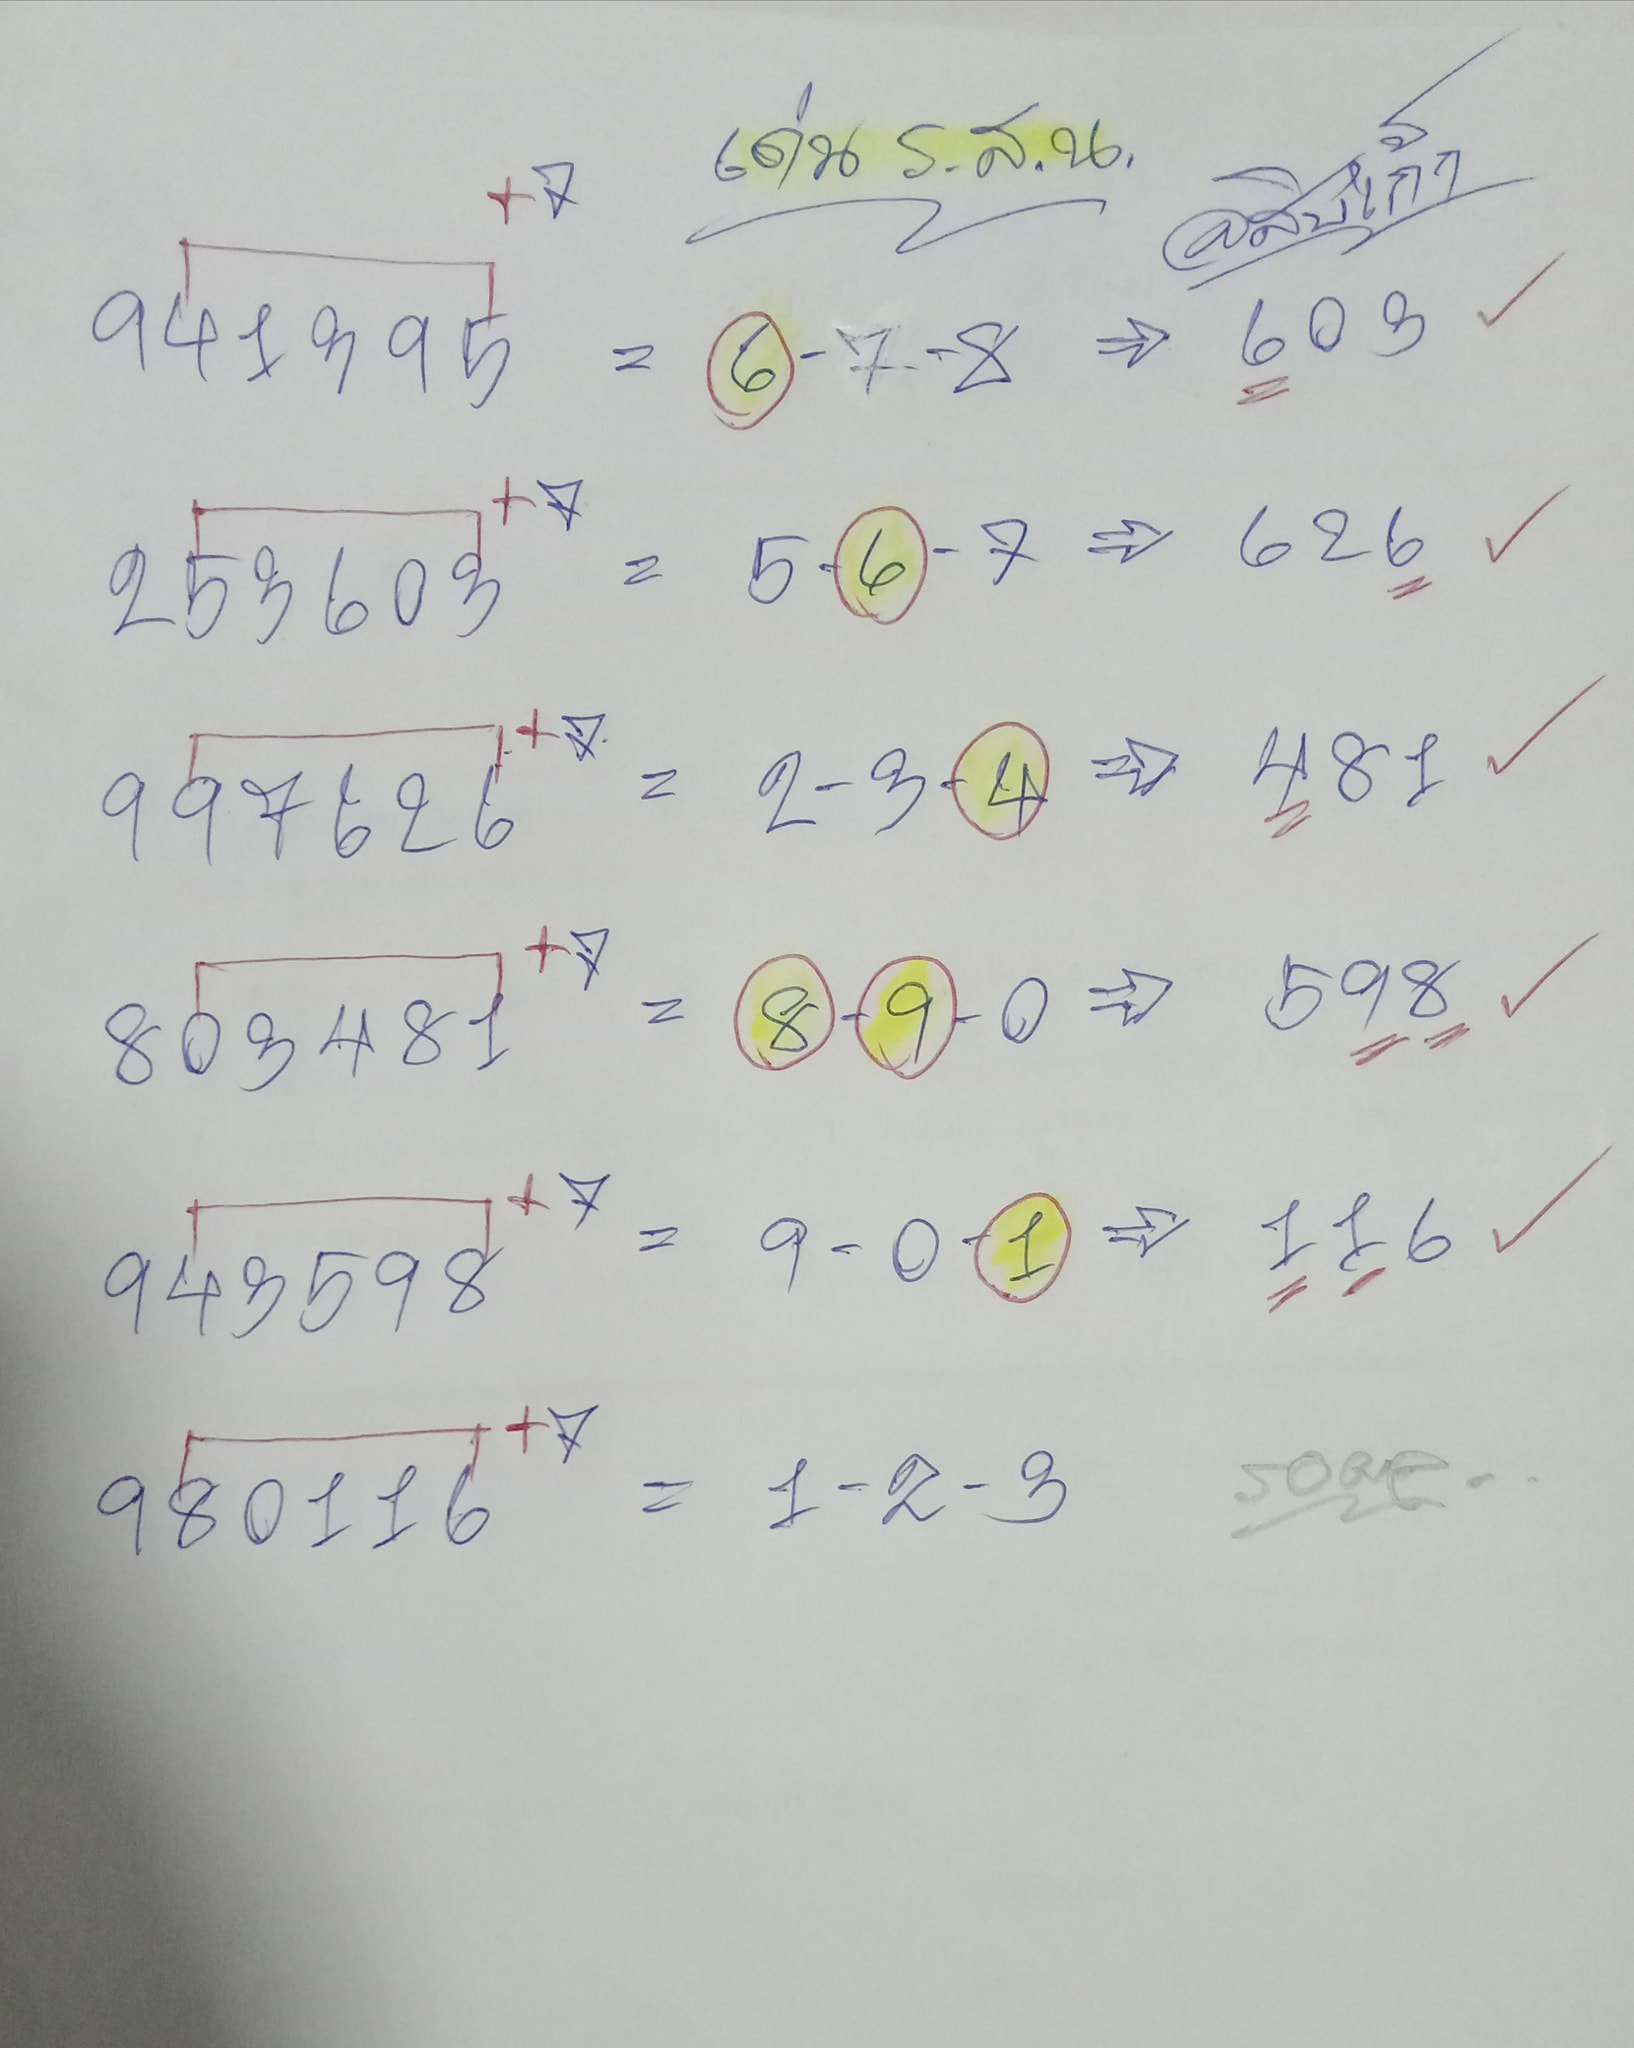 เด่น ร.ส.น.
สิบเก้า
+7
941395 = 6-7-8 ⇒ 603 ✓
+7
253603 = 5-6-7 ⇒ 626 ✓
+7
997626 = 2-3-4 ⇒ 481 ✓
+7
803481 = 8-9-0 ⇒ 598 ✓
+7
943598 = 9-0-1 ⇒ 116 ✓
+7
980116 = 1-2-3